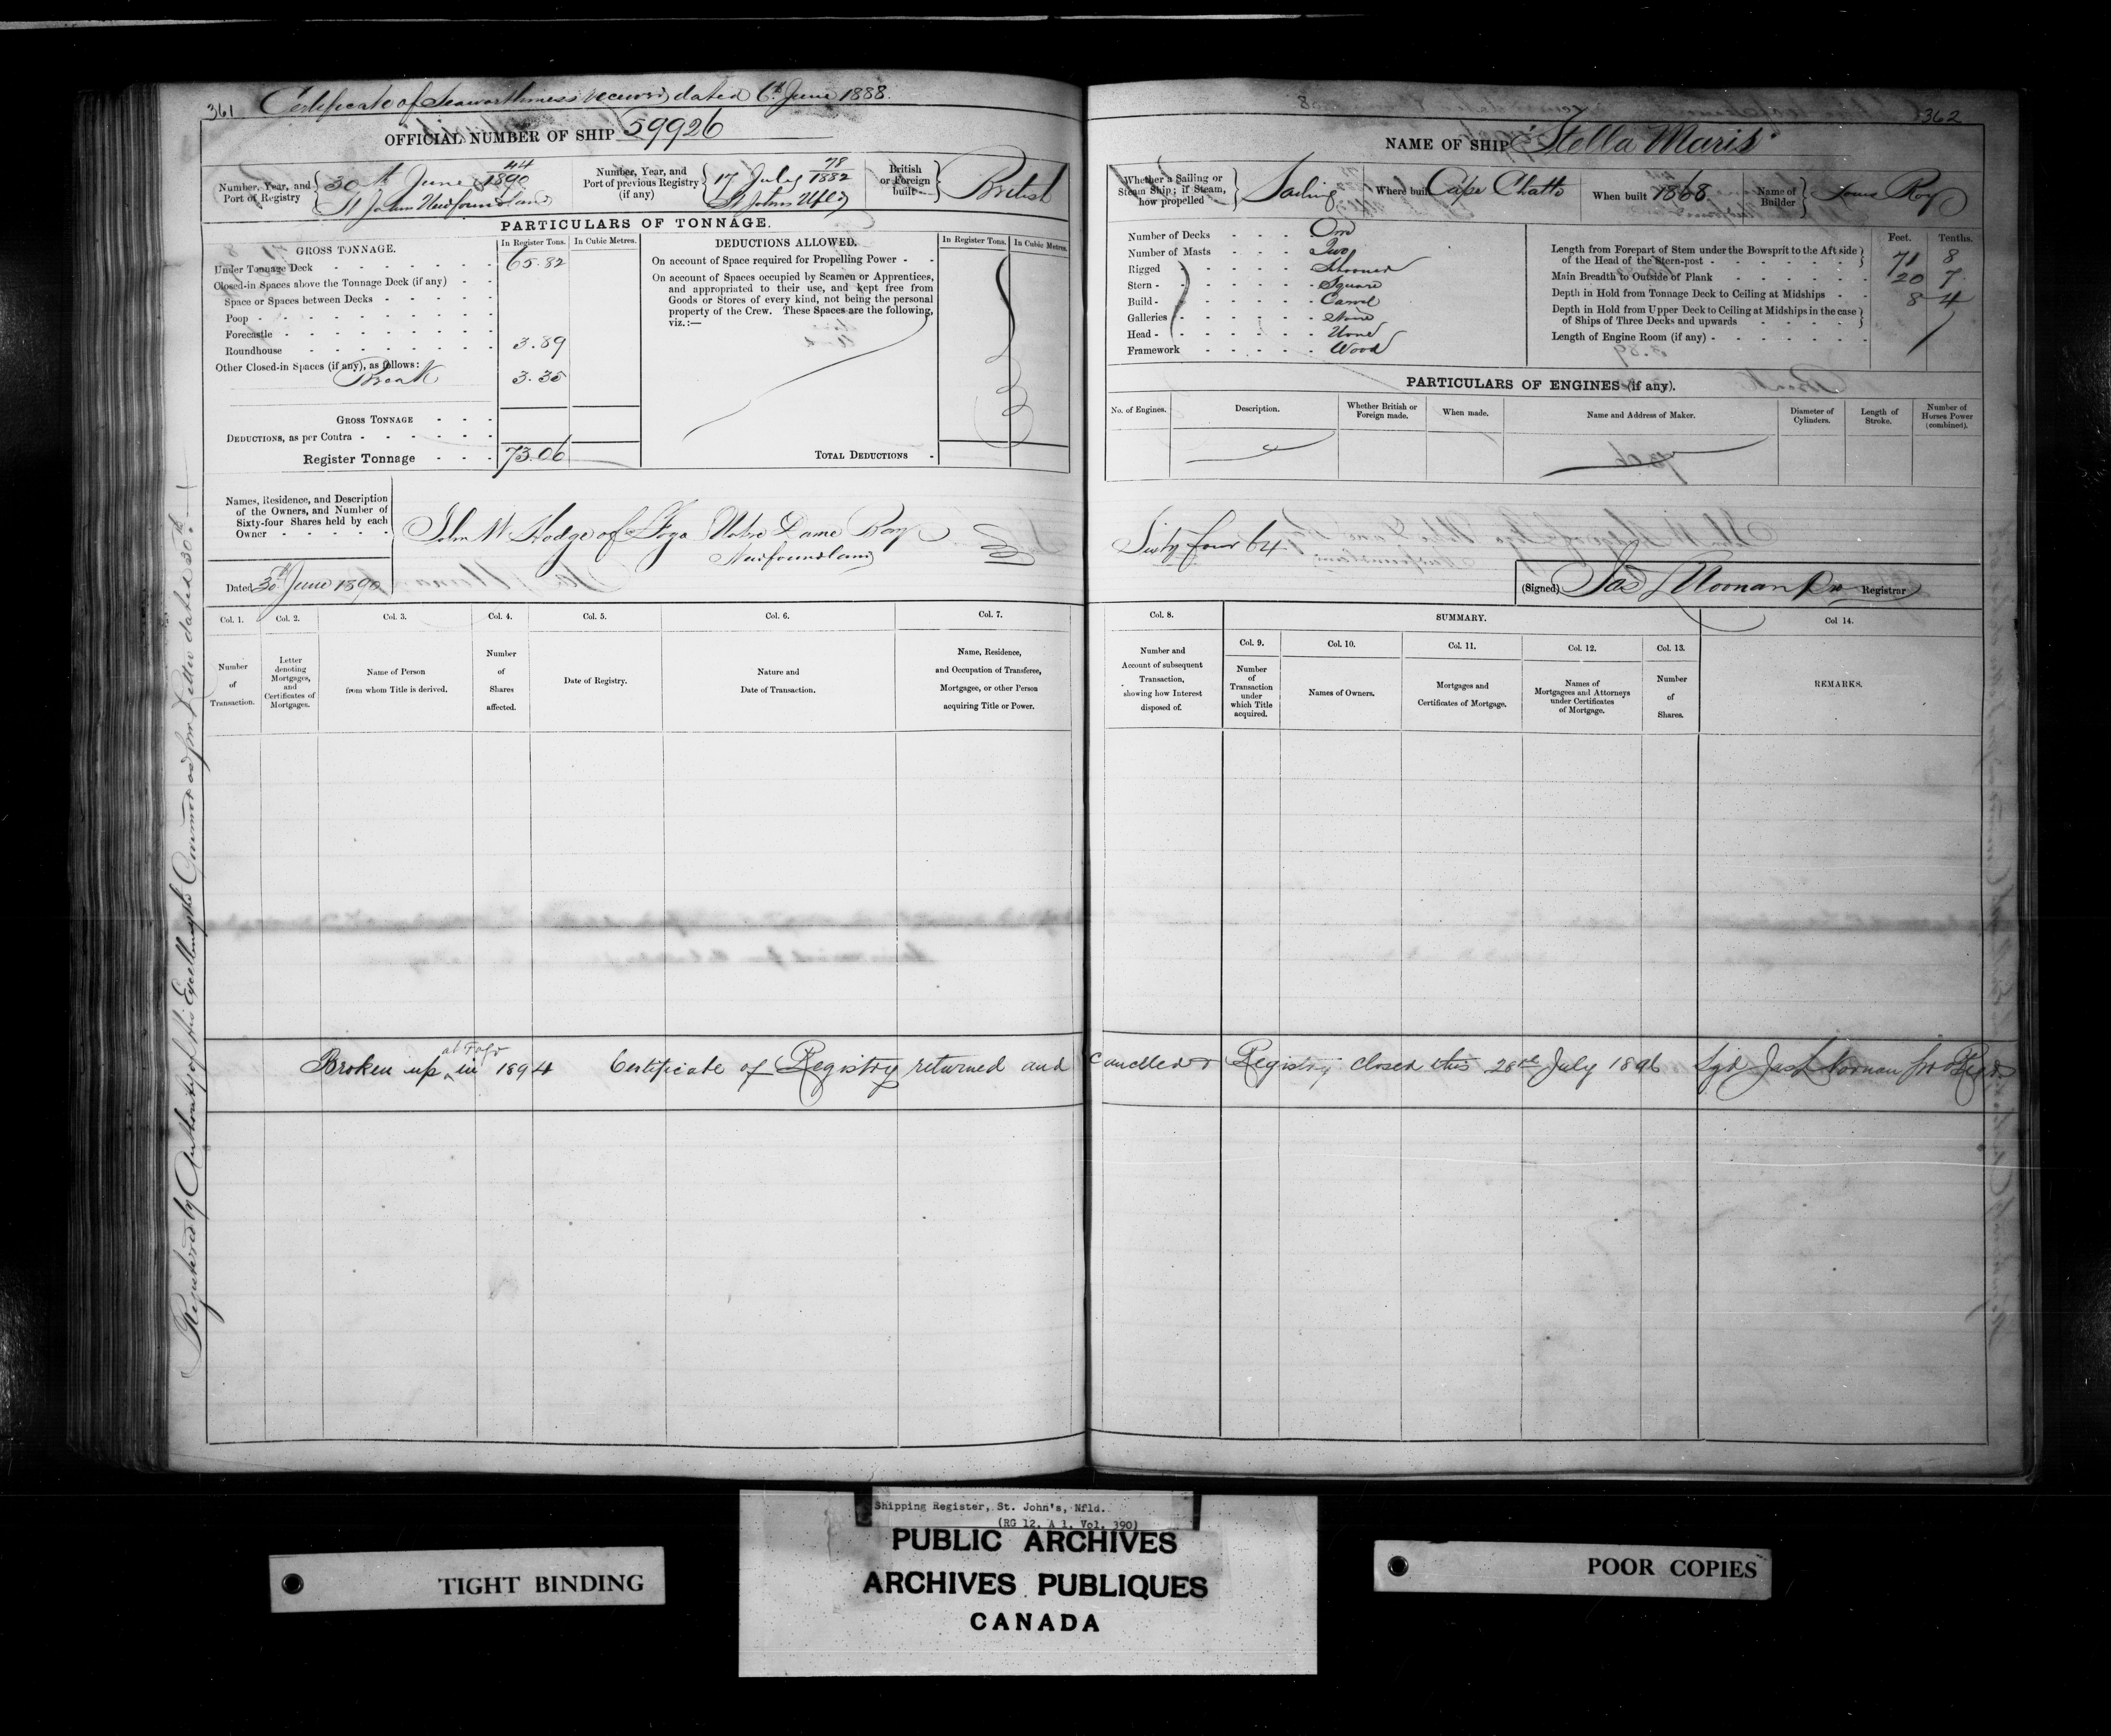 361 Certificate of Seaworthiness received dated 6th June 1888.
OFFICIAL NUMBER OF SHIP 59926
Number, Year, and Port of Registry 44 30th June 1890 St Johns Newfoundland
Number, Year, and Port of previous Registry (if any) 78 17 July 1882 St Johns Nfld
British or Foreign built British
PARTICULARS OF TONNAGE.
GROSS TONNAGE. In Register Tons. In Cubic Metres.
Under Tonnage Deck 65.82
Closed-in Spaces above the Tonnage Deck (if any)
Space or Spaces between Decks
Poop
Forecastle
Roundhouse 3.89
Other Closed-in Spaces (if any), as follows:
Break 3.35
GROSS TONNAGE
DEDUCTIONS, as per Contra
Register Tonnage 73.06
DEDUCTIONS ALLOWED. In Register Tons. In Cubic Metres.
On account of Space required for Propelling Power
On account of Spaces occupied by Seamen or Apprentices,
and appropriated to their use, and kept free from
Goods or Stores of every kind, not being the personal
property of the Crew. These Spaces are the following,
viz.:—
TOTAL DEDUCTIONS
Names, Residence, and Description
of the Owners, and Number of
Sixty-four Shares held by each
Owner
John W Hodge of Fogo Notre Dame Bay
Newfoundland
Dated 30th June 1890
Col. 1. Number of Transaction.
Col. 2. Letter denoting Mortgages, and Certificates of Mortgages.
Col. 3. Name of Person from whom Title is derived.
Col. 4. Number of Shares affected.
Col. 5. Date of Registry.
Col. 6. Nature and Date of Transaction.
Col. 7. Name, Residence, and Occupation of Transferee, Mortgagee, or other Person acquiring Title or Power.
Registered by Authority of His Excellency the Governor as per Letter dated 30th
362
NAME OF SHIP "Stella Maris"
Whether a Sailing or Steam Ship; if Steam, how propelled Sailing
Where built Cape Chatte
When built 1868
Name of Builder Louis Roy
Number of Decks One
Number of Masts Two
Rigged Schooner
Stern Square
Build Carvel
Galleries None
Head None
Framework Wood
Feet. Tenths.
Length from Forepart of Stem under the Bowsprit to the Aft side
of the Head of the Stern-post 71 8
Main Breadth to Outside of Plank 20 7
Depth in Hold from Tonnage Deck to Ceiling at Midships 8 4
Depth in Hold from Upper Deck to Ceiling at Midships in the case
of Ships of Three Decks and upwards
Length of Engine Room (if any)
PARTICULARS OF ENGINES (if any).
No. of Engines.
Description.
Whether British or Foreign made.
When made.
Name and Address of Maker.
Diameter of Cylinders.
Length of Stroke.
Number of Horses Power (combined).
Sixty four 64
(Signed) Jas L Noonan Registrar
Col. 8. Number and Account of subsequent Transaction, showing how Interest disposed of.
SUMMARY.
Col. 9. Number of Transaction under which Title acquired.
Col. 10. Names of Owners.
Col. 11. Mortgages and Certificates of Mortgage.
Col. 12. Names of Mortgagees and Attorneys under Certificates of Mortgage.
Col. 13. Number of Shares.
Col 14. REMARKS.
Broken up at Fogo in 1894 Certificate of Registry returned and cancelled & Registry closed this 28th July 1896 Sgd Jas L Noonan
Shipping Register, St. John's, Nfld.
(RG 12, A 1, Vol. 390)
PUBLIC ARCHIVES
ARCHIVES PUBLIQUES
CANADA
TIGHT BINDING
POOR COPIES